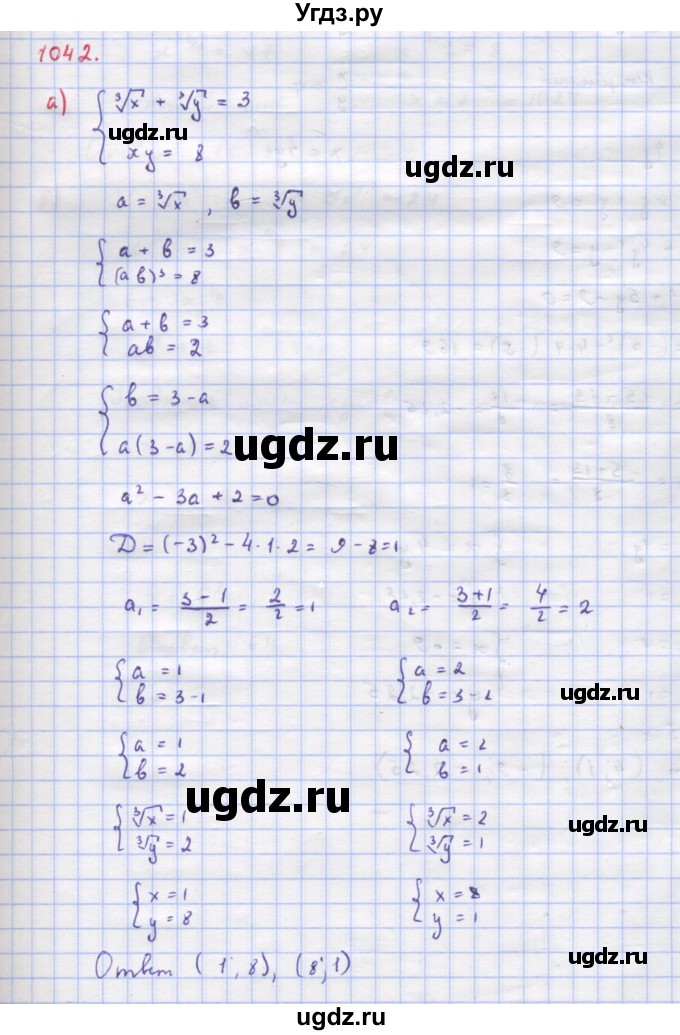 Угдз.ру
1042.
а) { ∛x + ∛y = 3
ugdz.ru
xy = 8
ugdz.ru
a = ∛x , b = ∛y
{ a + b = 3
(ab)³ = 8
{ a + b = 3
ab = 2
{ b = 3 - a
a(3 - a) = 2
ugdz.ru
a² - 3a + 2 = 0
D = (-3)² - 4·1·2 = 9 - 8 = 1
a₁ = (3 - 1)/2 = 2/2 = 1    a₂ = (3 + 1)/2 = 4/2 = 2
{ a = 1    { a = 2
b = 3 - 1    b = 3 - 2
ugdz.ru
{ a = 1    { a = 2
b = 2    b = 1
ugdz.ru
{ ∛x = 1    { ∛x = 2
∛y = 2    ∛y = 1
ugdz.ru
{ x = 1    { x = 8
y = 8    y = 1
Ответ (1; 8), (8; 1)
ugdz.ru